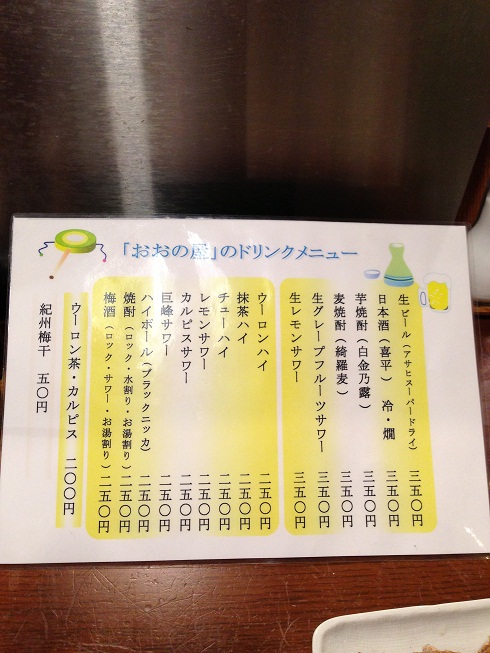 「おおの屋」のドリンクメニュー
生ビール（アサヒスーパードライ） 三五〇円
日本酒（喜平） 冷・燗 三五〇円
芋焼酎（白金乃露） 三五〇円
麦焼酎（綺羅麦） 三五〇円
生グレープフルーツサワー 三五〇円
生レモンサワー 三五〇円
ウーロンハイ 二五〇円
抹茶ハイ 二五〇円
チューハイ 二五〇円
レモンサワー 二五〇円
カルピスサワー 二五〇円
巨峰サワー 二五〇円
ハイボール（ブラックニッカ） 二五〇円
焼酎（ロック・水割り・お湯割り） 二五〇円
梅酒（ロック・サワー・お湯割り） 二五〇円
ウーロン茶・カルピス 二〇〇円
紀州梅干 五〇円